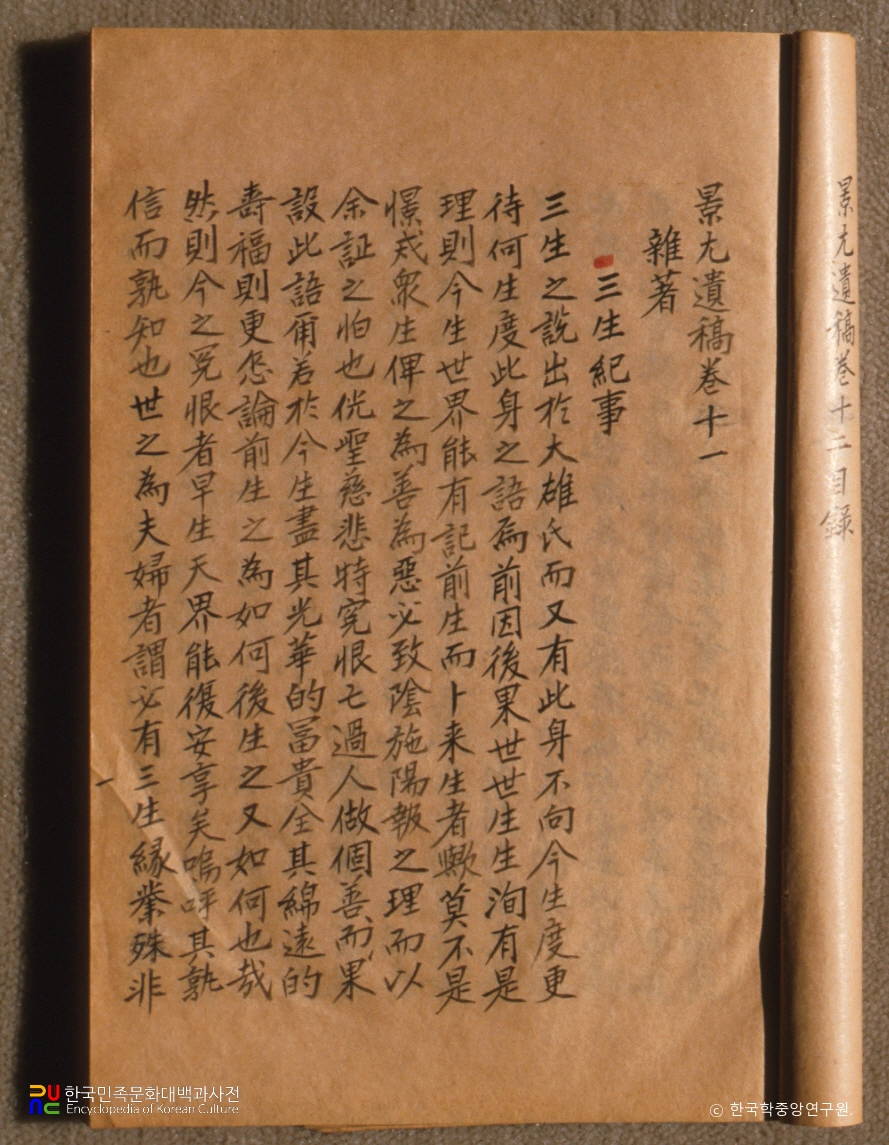 景尤遺稿卷十二目錄
景尤遺稿卷十一
雜著
三生紀事
三生之說出於大雄氏而又有此身不向今生度更
待何生度此身之語爲前因後果世世生生洵有是
理則今生世界能有記前生而卜来生者歟莫不是
憬戒衆生俾之為善為惡必致陰施陽報之理而以
余証之怕也恍聖慈悲特寃恨七過人做個善而果
設此語爾若於今生盡其光華的冨貴全其綿遠的
壽福則更怎論前生之為如何後生之又如何也哉
然則今之寃恨者早生天界能復安享矣嗚呼其孰
信而孰知也世之為夫婦者謂必有三生緣業殊非
한국민족문화대백과사전
Encyclopedia of Korean Culture
© 한국학중앙연구원